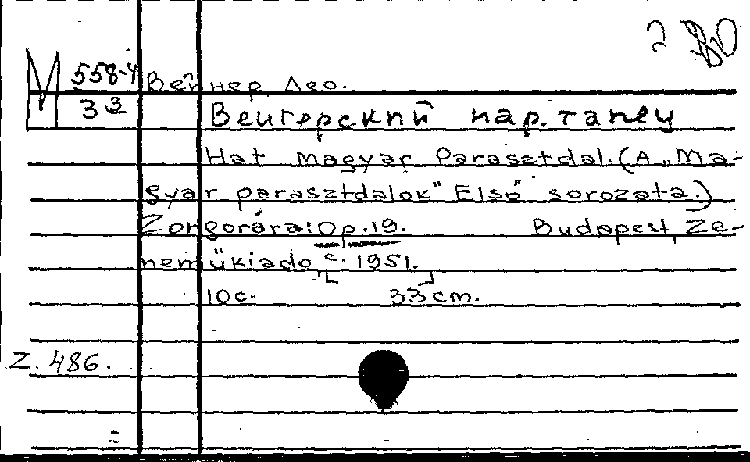 2 80
М 558-4 Вейнер, Лео.
33 Венгерский нар. танец
Hat magyar Parasztdal. (A „Ma-
gyar parasztdalok" Első sorozata.)
Zongorára: Op. 19. Budapest, Ze-
neműkiadó, c. 1951.
10 с. 33 cm.
Z. 486.